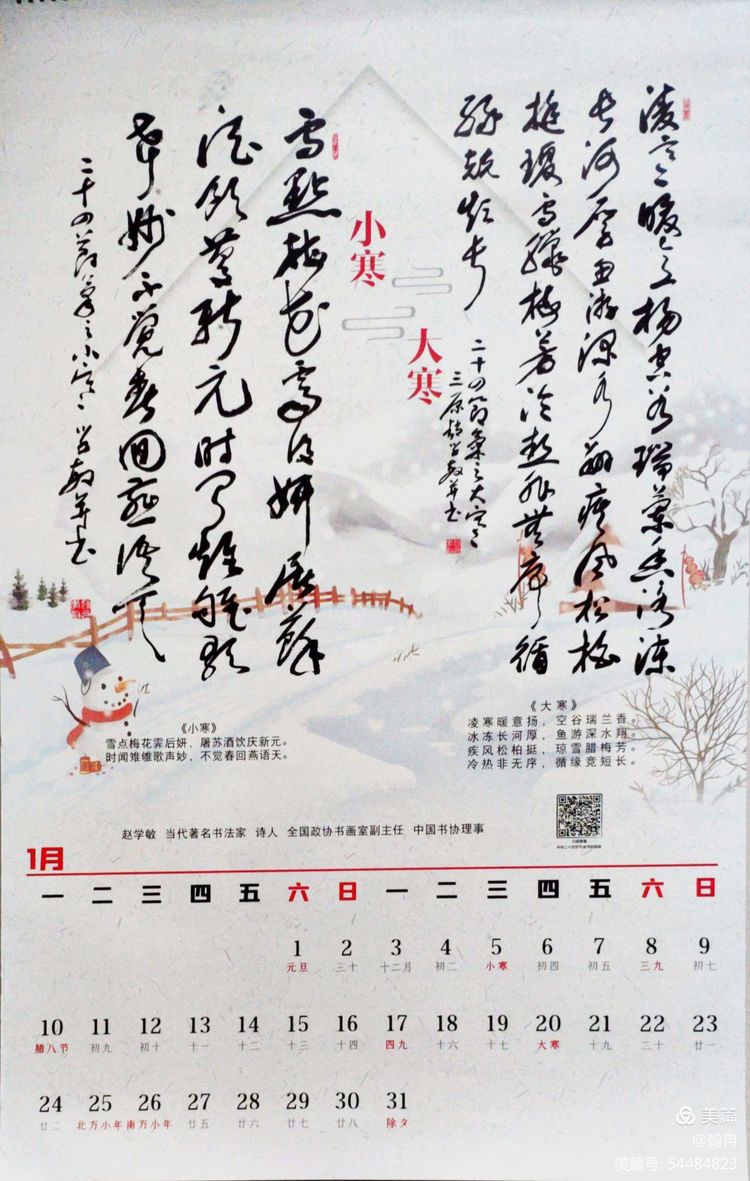 凌寒暖意扬空谷瑞兰香冰冻
长河厚鱼游深水翔疾风松柏
挺琼雪腊梅芳冷热非无序循
缘竞短长
二十四节气之大寒
三原赵学敏并书
小寒
大寒
雪點梅花霁后妍屠蘇
酒饮慶新元时闻雉雊歌
声妙不觉春回燕语天
二十四节气之小寒 学敏并书
《小寒》
雪点梅花霁后妍,屠苏酒饮庆新元。
时闻雉雊歌声妙,不觉春回燕语天。
《大寒》
凌寒暖意扬,空谷瑞兰香。
冰冻长河厚,鱼游深水翔。
疾风松柏挺,琼雪腊梅芳。
冷热非无序,循缘竞短长。
赵学敏 当代著名书法家 诗人 全国政协书画室副主任 中国书协理事
1月
一 二 三 四 五 六 日 一 二 三 四 五 六 日
1 2 3 4 5 6 7 8 9
元旦 三十 十二月 初二 小寒 初四 初五 三九 初七
10 11 12 13 14 15 16 17 18 19 20 21 22 23
腊八节 初九 初十 十一 十二 十三 十四 四九 十六 十七 大寒 十九 二十 廿一
24 25 26 27 28 29 30 31
廿二 北方小年 南方小年 廿五 廿六 廿七 廿八 除夕
美篇
@翰冉
美篇号: 54484823